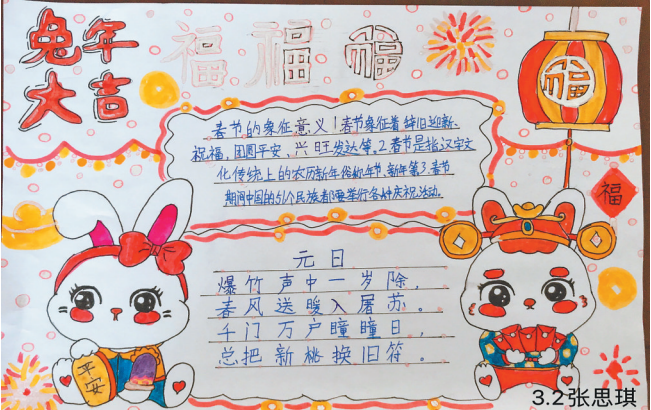 兔年
大吉
福福福
福
春节的象征意义1春节象征着辞旧迎新、
祝福、团圆平安、兴旺发达等、2春节是指汉字文
化传统上的农历新年俗称年节、新年等3、春节
期间中国的51个民族都要举行各种庆祝活动.
福
元日
爆竹声中一岁除,
春风送暖入屠苏。
千门万户曈曈日,
总把新桃换旧符。
平安
3.2张思琪